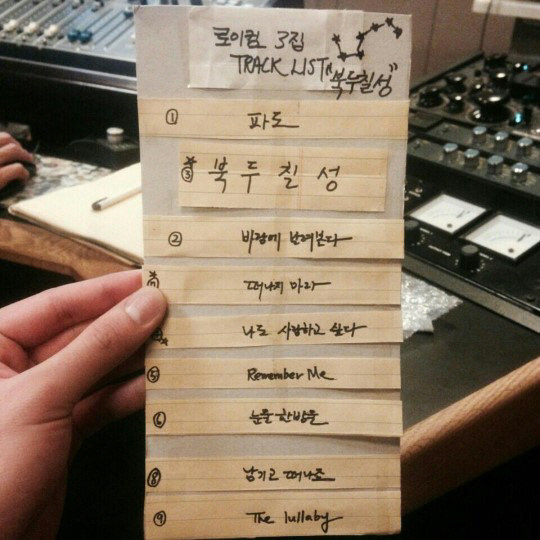 로이킴 3집
TRACK LIST "북두칠성"
① 파도
*③ 북두칠성
② 바람에 날려본다
떠나지 마라
나도 사랑하고 싶다
⑤ Remember Me
⑥ 눈물 한방울
⑧ 남기고 떠나죠
⑨ The lullaby